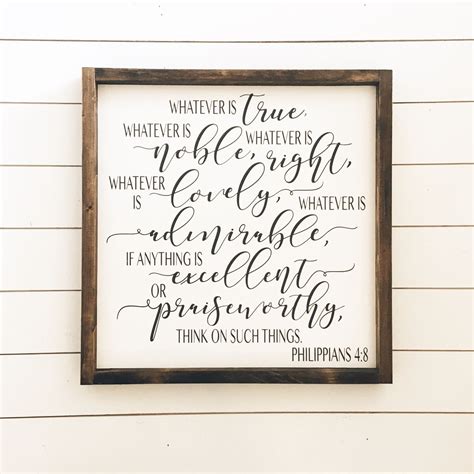 WHATEVER IS true,
WHATEVER IS noble, WHATEVER IS right,
WHATEVER IS lovely, WHATEVER IS
admirable,
IF ANYTHING IS excellent
OR praiseworthy,
THINK ON SUCH THINGS.
PHILIPPIANS 4:8